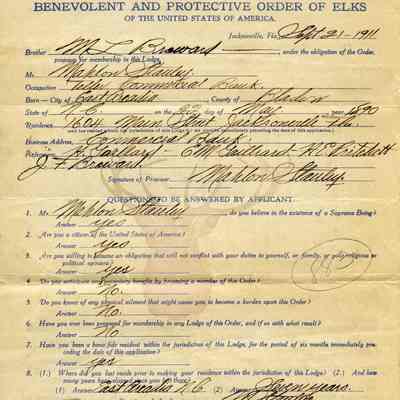 BENEVOLENT AND PROTECTIVE ORDER OF ELKS
OF THE UNITED STATES OF AMERICA.
Jacksonville, Fla. Sept. 21 - 1911
Brother M L Broward, under the obligation of the Order,
proposes for membership in this Lodge
Mr. Mahlon Stanley
Occupation Teller Commercial Bank
Born - City of East Arcadia, County of Bladen
State of N.C. on the day of May year 1890
Residence 1604 Main Street Jacksonville Fla.
and has resided within the jurisdiction of this Lodge for six months immediately preceding the date of this application
Business Address Commercial Bank
References C M Gailliard
J. F Broward
Signature of Proposer Mahlon Stanley
QUESTIONS TO BE ANSWERED BY APPLICANT.
1. Mr. Mahlon Stanley, do you believe in the existence of a Supreme Being?
Answer yes
2. Are you a citizen of the United States of America?
Answer yes
3. Are you willing to assume an obligation that will not conflict with your duties to yourself, or family, or your religious or
political opinions?
Answer yes
4. Do you anticipate any pecuniary benefits by becoming a member of this Order?
Answer no.
5. Do you know of any physical ailment that might cause you to become a burden upon the Order?
Answer no.
6. Have you ever been proposed for membership in any Lodge of this Order, and if so with what result?
Answer no
7. Have you been a bona fide resident within the jurisdiction of this Lodge, for the period of six months immediately pre-
ceding the date of this application?
Answer yes
8. (1.) Where did you last reside prior to making your residence within the jurisdiction of this Lodge? (2.) And how
many years
(1) Answer East Arcadia N.C. (2) Answer Seven years.